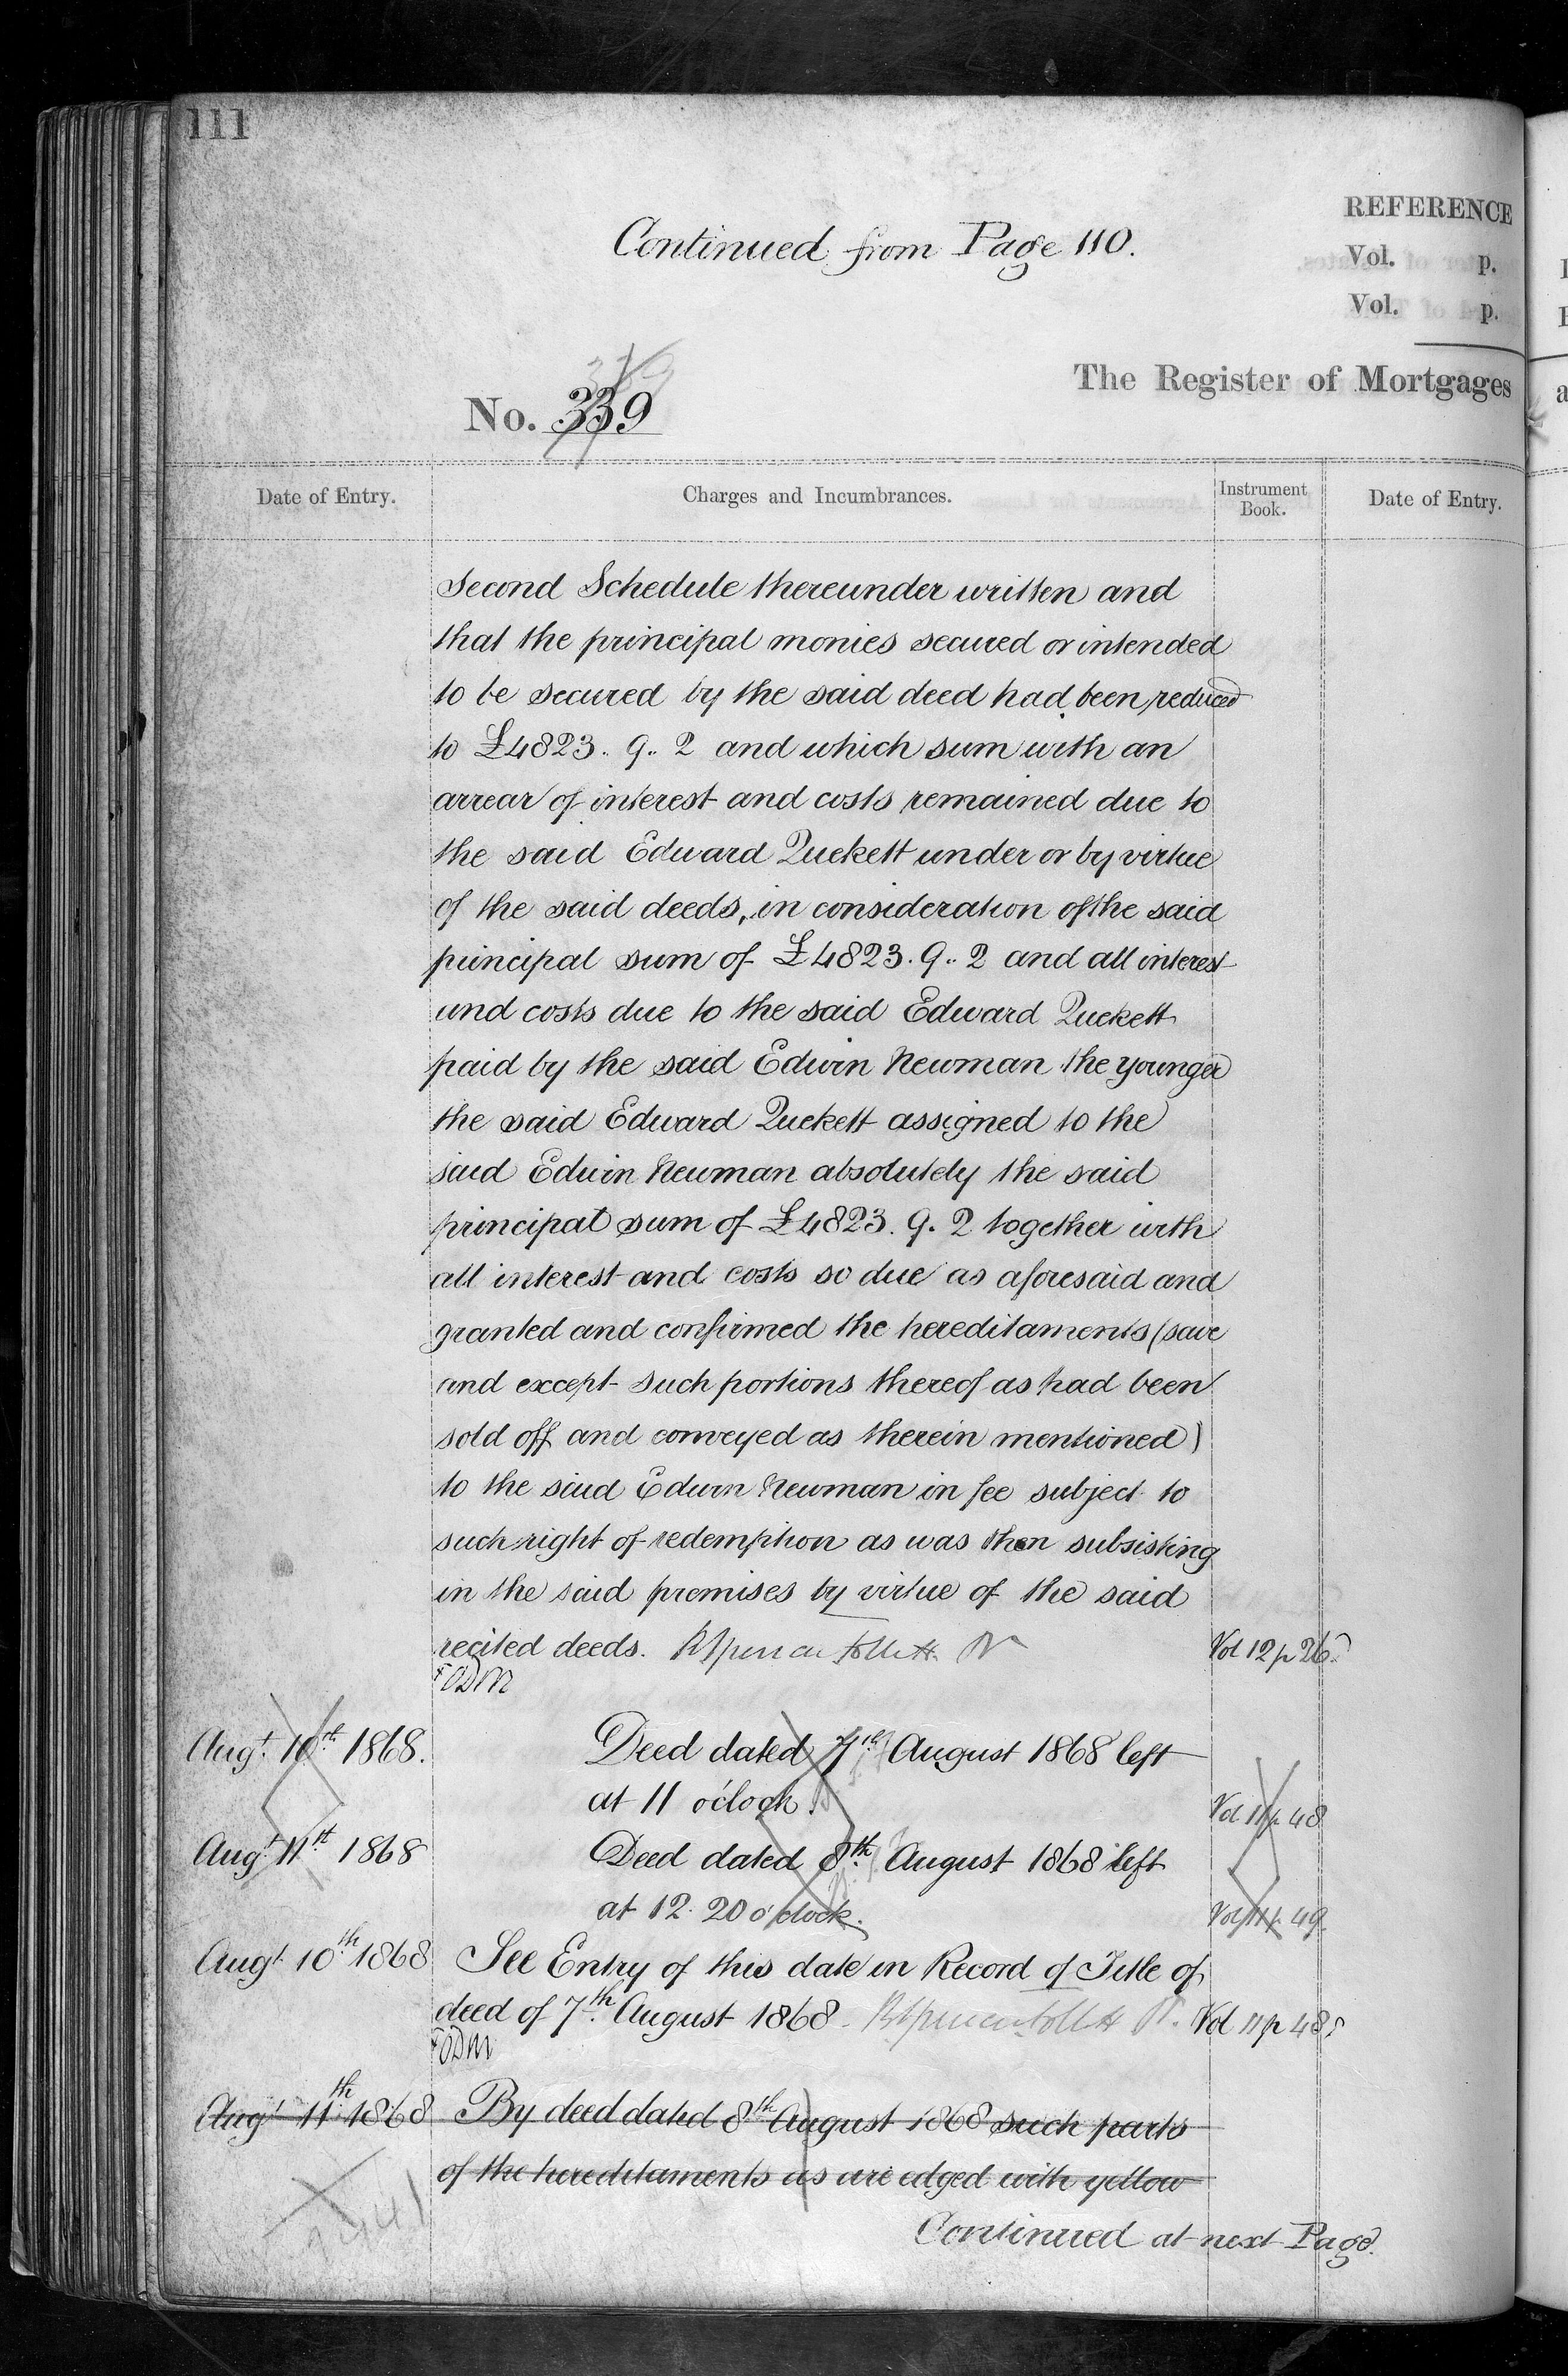 111
Continued from Page 110.
REFERENCE
Vol. p.
Vol. p.
The Register of Mortgages
No. 339
Date of Entry.
Charges and Incumbrances.
Instrument Book.
Date of Entry.
Second Schedule thereunder written and
that the principal monies secured or intended
to be secured by the said deed had been reduced
to £4823.. 9.. 2 and which sum with an
arrear of interest and costs remained due to
the said Edward Quekett under or by virtue
of the said deeds, in consideration of the said
principal sum of £4823. 9.. 2 and all interest
and costs due to the said Edward Quekett
paid by the said Edwin Newman the younger
the said Edward Quekett assigned to the
said Edwin Newman absolutely the said
principal sum of £4823. 9. 2 together with
all interest and costs so due as aforesaid and
granted and confirmed the hereditaments (save
and except such portions thereof as had been
sold off and conveyed as therein mentioned)
to the said Edwin Newman in fee subject to
such right of redemption as was then subsisting
in the said premises by virtue of the said
recited deeds. Vol 12 p 26.
Augt. 10th 1868. Deed dated 7th August 1868 left
at 11 o'clock. Vol 11 p 48
Augt 11th 1868 Deed dated 8th August 1868 left
at 12. 20 o'clock. Vol 11 p. 49.
Augt 10th 1868 See Entry of this date in Record of Title of
deed of 7th August 1868. Vol 11 p 48.
Augt 11th 1868 By deed dated 8th August 1868 such parts
of the hereditaments as are edged with yellow
Continued at next Page.